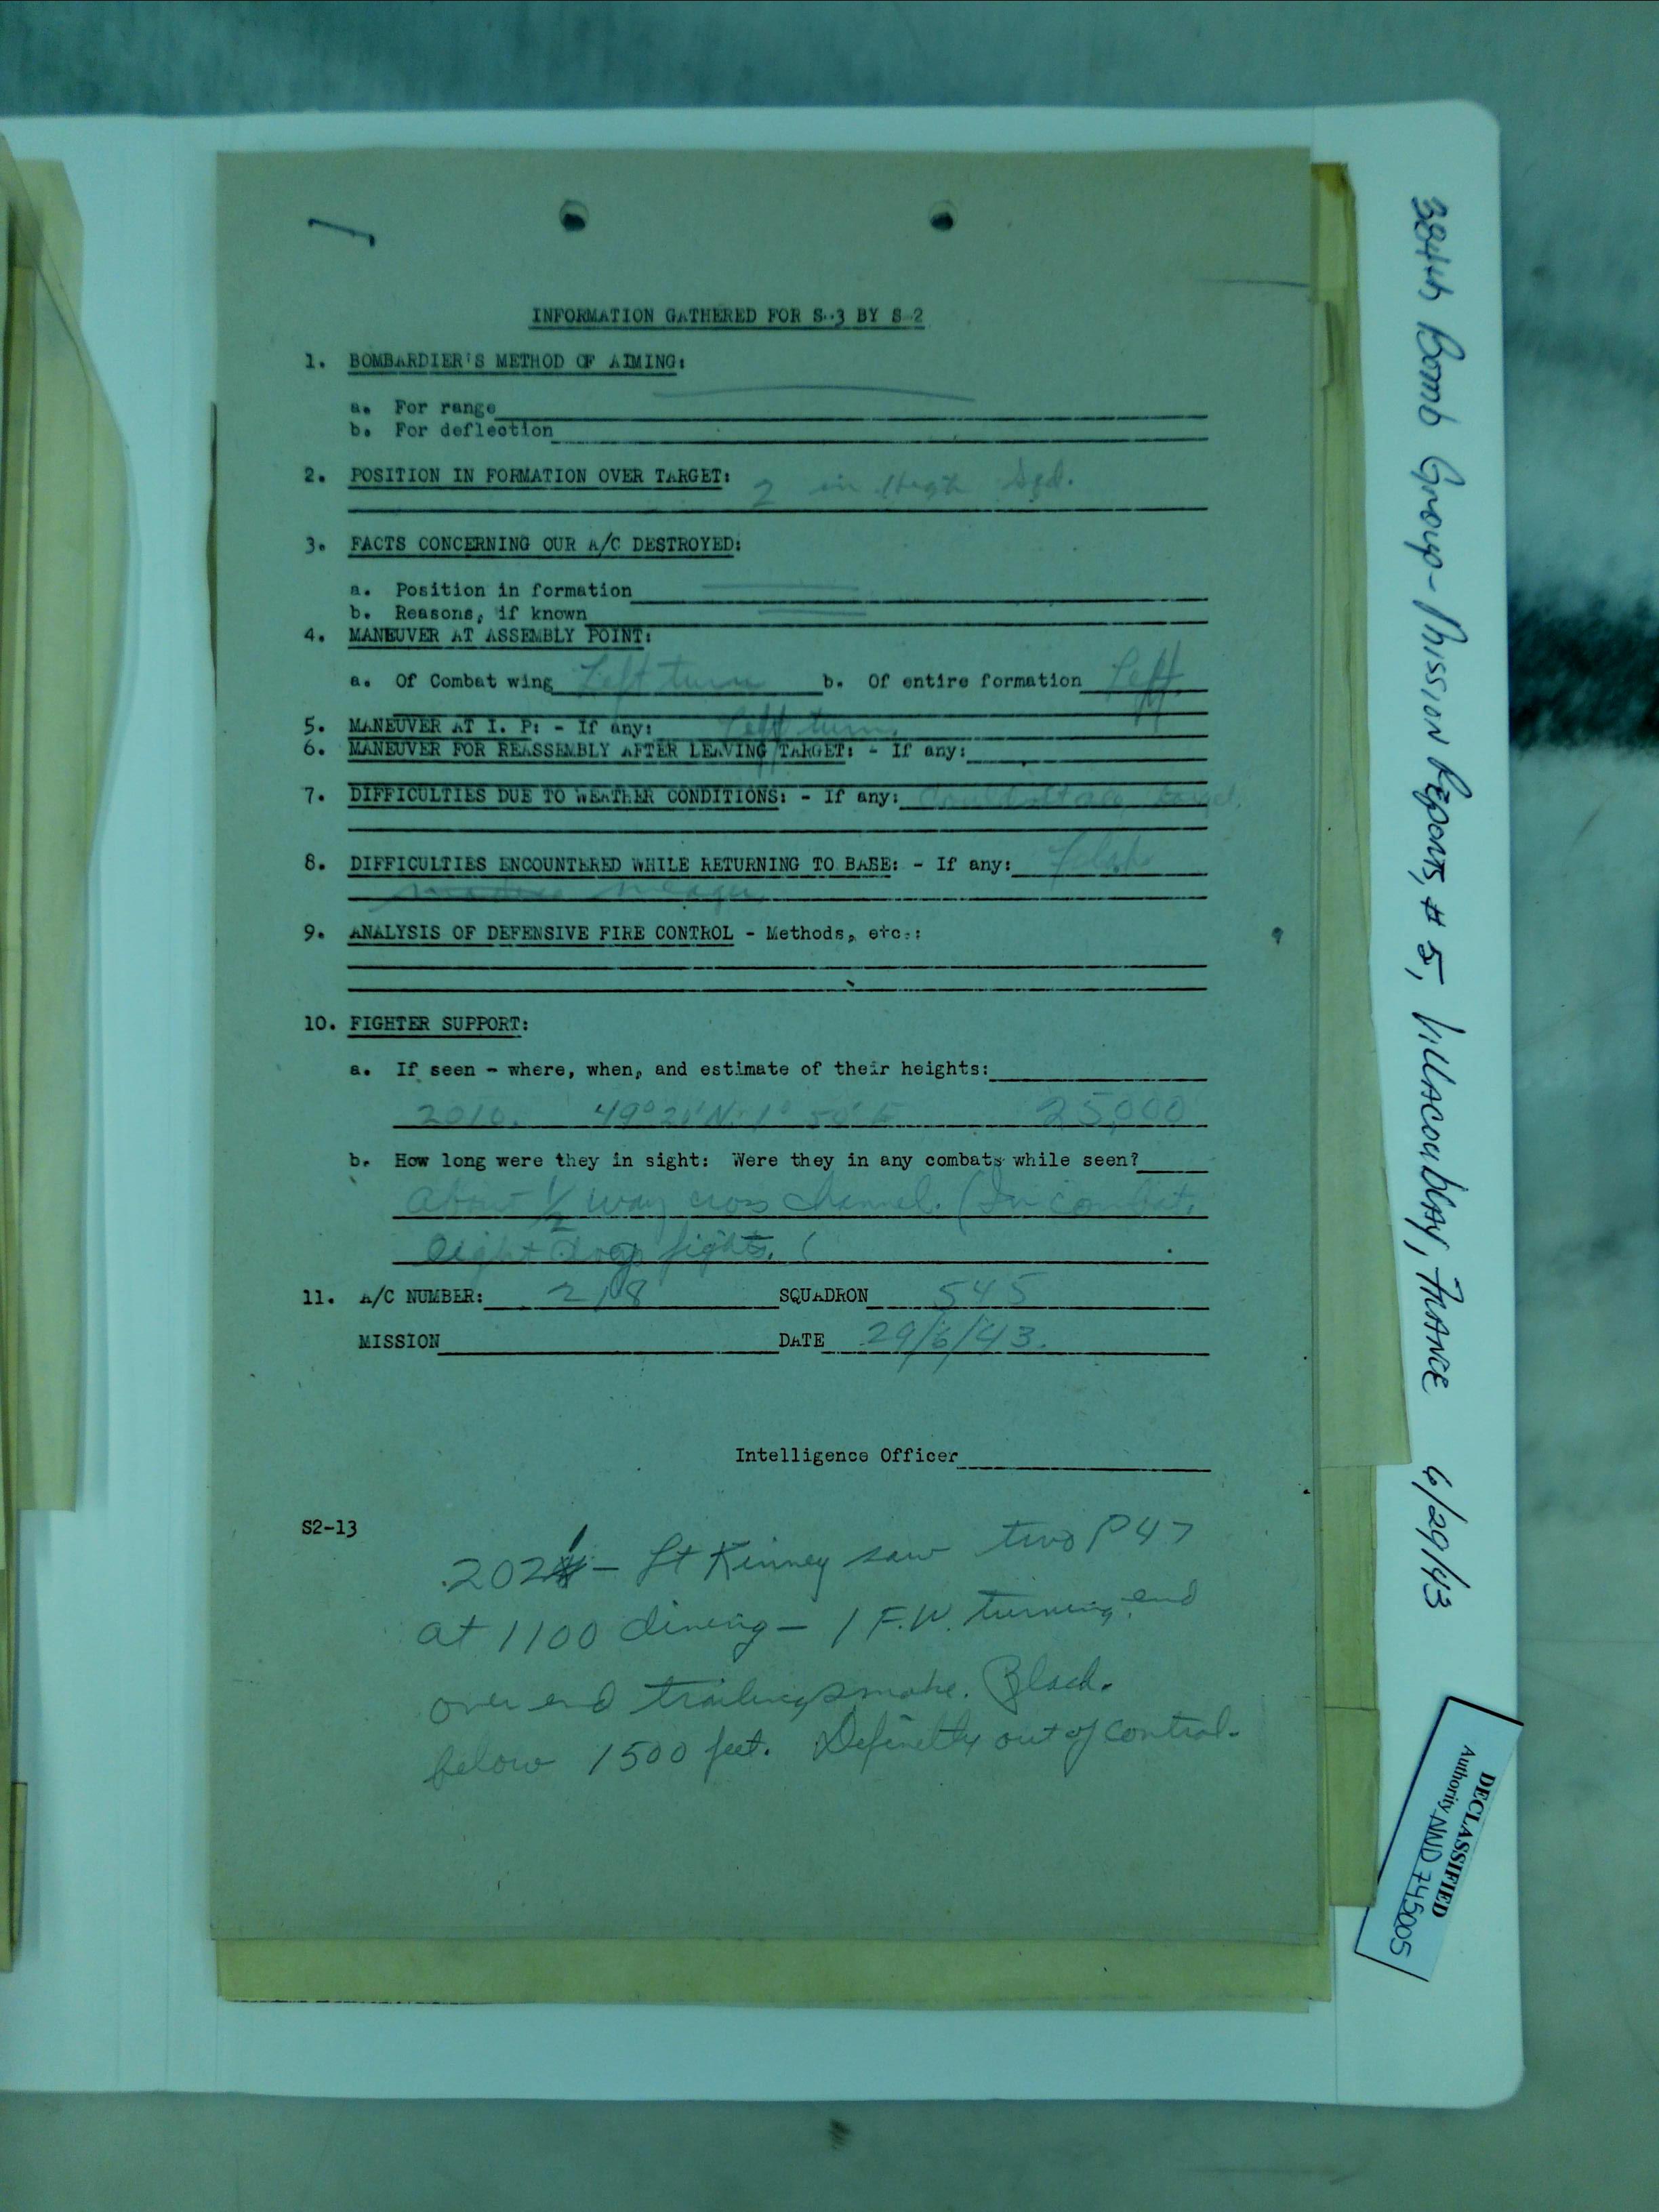 INFORMATION GATHERED FOR S-3 BY S-2
1. BOMBARDIER'S METHOD OF AIMING:
a. For range
b. For deflection
2. POSITION IN FORMATION OVER TARGET: 2 in High Sqd.
3. FACTS CONCERNING OUR A/C DESTROYED:
a. Position in formation
b. Reasons, if known
4. MANEUVER AT ASSEMBLY POINT:
a. Of Combat wing Left turn b. Of entire formation Left
5. MANEUVER AT I. P: - If any: Left turn.
6. MANEUVER FOR REASSEMBLY AFTER LEAVING TARGET: - If any:
7. DIFFICULTIES DUE TO WEATHER CONDITIONS: - If any: Couldn't see target.
8. DIFFICULTIES ENCOUNTERED WHILE RETURNING TO BASE: - If any: Flak
meager
9. ANALYSIS OF DEFENSIVE FIRE CONTROL - Methods, etc.:
10. FIGHTER SUPPORT:
a. If seen - where, when, and estimate of their heights:
2010. 49° 20' N. 1° 50' E 25,000
b. How long were they in sight: Were they in any combats while seen?
About 1/2 way cross channel. (In combat.
Eight dog fights. (
11. A/C NUMBER: 218 SQUADRON 545
MISSION DATE 29/6/43.
Intelligence Officer
S2-13
2021 - Lt Kinney saw two P47
at 1100 diving - 1 F.W. turning end
over end trailing smoke. Black.
below 1500 feet. Definetly out of control.
384th Bomb Group - Mission Reports, # 5, Villacoublay, France 6/29/43
DECLASSIFIED
Authority NND 745005